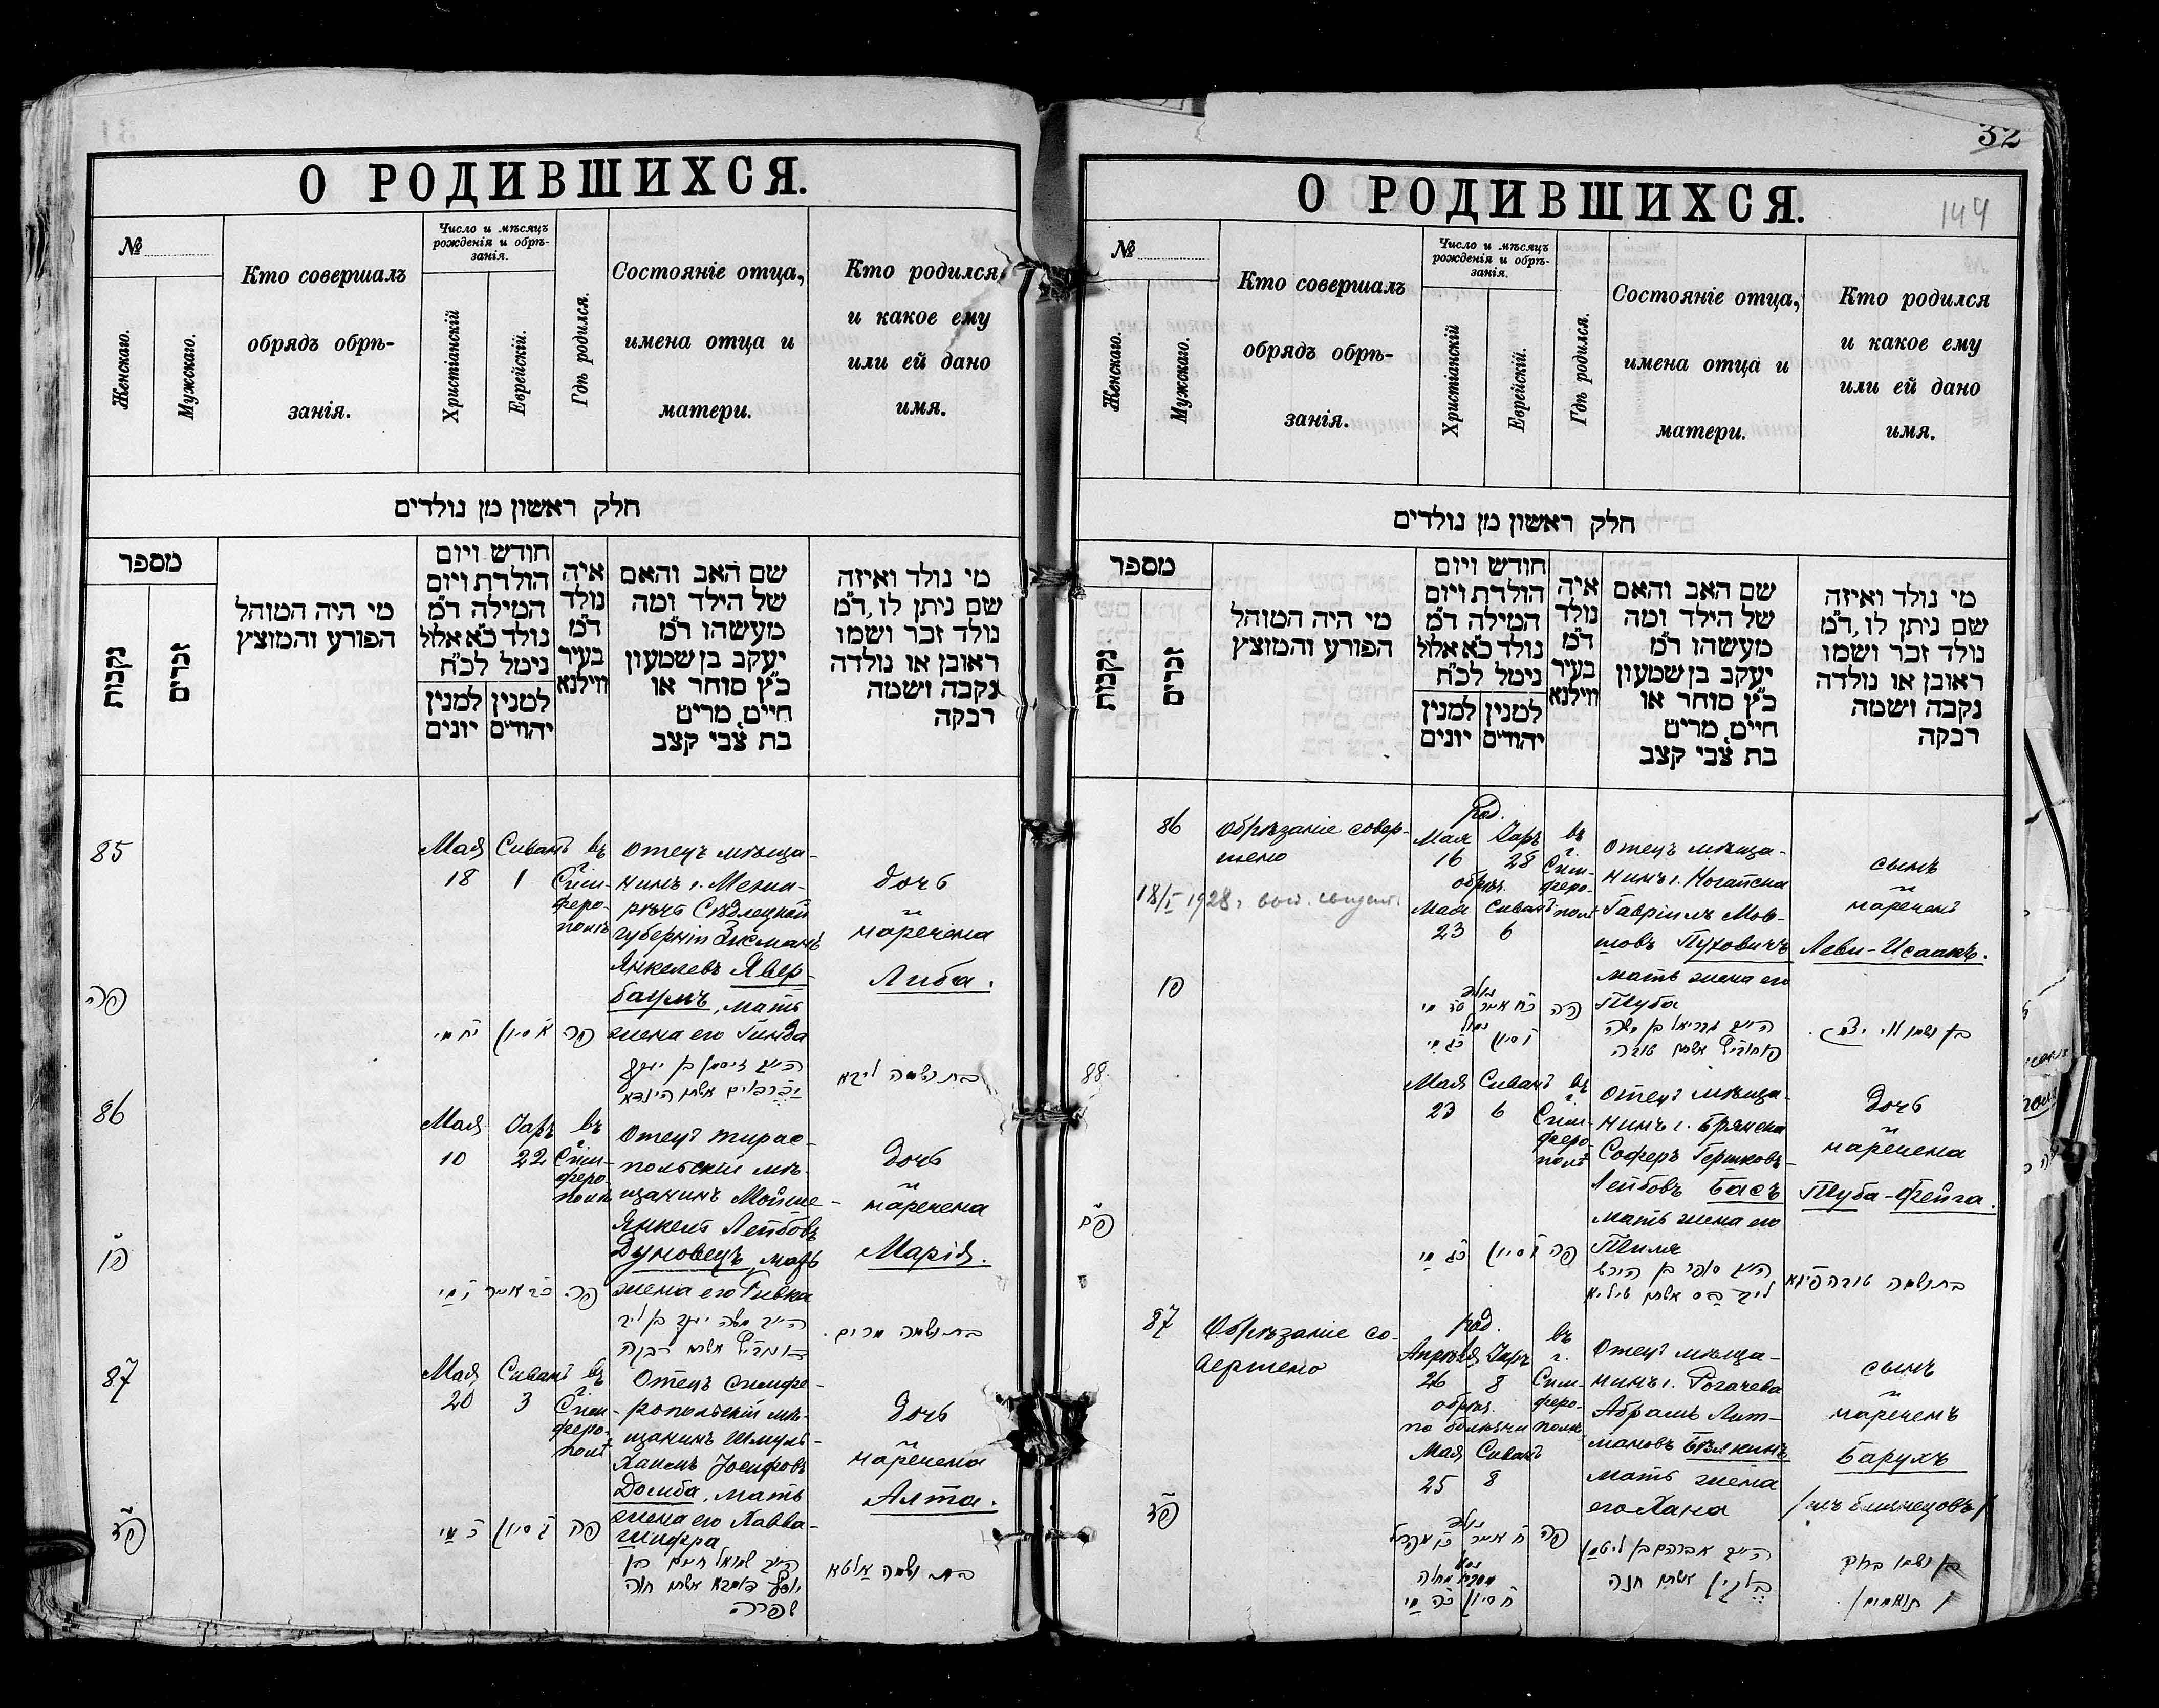 О РОДИВШИХСЯ.
№
Женскаго.
Мужскаго.
Кто совершалъ
обрядъ обрѣ-
занія.
Число и мѣсяцъ
рожденія и обрѣ-
занія.
Христіанскій
Еврейскій.
Гдѣ родился.
Состояніе отца,
имена отца и
матери.
Кто родился
и какое ему
или ей дано
имя.
חלק ראשון מן נולדים
מספר
נקבות
זכרים
מי היה המוהל
הפורע והמוצץ
חודש ויום
הולדת ויום
המילה ד״מ
נולד כ״א אלול
ניטל לכ״ח
למנין יהודים
למנין יונים
איה
נולד
ד״מ
בעיר
ווילנא
שם האב והאם
של הילד ומה
מעשהו ד״מ
יעקב בן שמעון
כ״ץ סוחר או
חיים, מרים
בת צבי קצב
מי נולד ואיזה
שם ניתן לו, ד״מ
נולד זכר ושמו
ראובן או נולדה
נקבה ושמה
רבקה
85
Мая
18
Сиванъ
1
въ
г.
Сим-
феро-
полѣ
Отецъ мѣща-
нинъ г. Межи-
рѣчъ Сѣдлецкой
губерніи Зисманъ
Янкелевъ Явер-
баумъ, мать
жена его Гинда
дочь
наречена
Либа.
פה
י״ח מאי
א סיון
פה
בת ושמה ליבא
86
Мая
10
Іаръ
22
въ
г.
Сим-
феро-
полѣ
Отецъ тирас-
польскій мѣ-
щанинъ Мойше-
Янкель Лейбовъ
Дуновецъ, мать
жена его Ривка
дочь
наречена
Марія.
פו
פה
בת ושמה מרים.
87
Мая
20
Сиванъ
3
въ
г.
Сим-
феро-
полѣ
Отецъ симфе-
ропольскій мѣ-
щанинъ Шмуль-
Хаимъ Іосифовъ
Домба, мать
жена его Хавва-
Шифра
дочь
наречена
Алта.
פז
כ מאי
ג סיון
פה
שפרה
בת ושמה אלטא
32
144
О РОДИВШИХСЯ.
№
Женскаго.
Мужскаго.
Кто совершалъ
обрядъ обрѣ-
занія.
Число и мѣсяцъ
рожденія и обрѣ-
занія.
Христіанскій
Еврейскій.
Гдѣ родился.
Состояніе отца,
имена отца и
матери.
Кто родился
и какое ему
или ей дано
имя.
חלק ראשון מן נולדים
מספר
נקבות
זכרים
מי היה המוהל
הפורע והמוצץ
חודש ויום
הולדת ויום
המילה ד״מ
נולד כ״א אלול
ניטל לכ״ח
למנין יהודים
למנין יונים
איה
נולד
ד״מ
בעיר
ווילנא
שם האב והאם
של הילד ומה
מעשהו ד״מ
יעקב בן שמעון
כ״ץ סוחר או
חיים, מרים
בת צבי קצב
מי נולד ואיזה
שם ניתן לו, ד״מ
נולד זכר ושמו
ראובן או נולדה
נקבה ושמה
רבקה
86
Обрѣзаніе совер-
шено
18/I 1928.
род.
Мая
16
Іаръ
28
обрѣз.
Мая
23
Сиванъ
6
въ
г.
Сим-
феро-
полѣ
Отецъ мѣща-
нинъ г. Ногайска
Гавріилъ Мов-
шовъ Пуховичъ
мать жена его
Туба
сынъ
нареченъ
Леви-Исаакъ.
פה
88
Мая
23
Сиванъ
6
въ
г.
Сим-
феро-
полѣ
Отецъ мѣща-
нинъ г. Брянска
Соферъ Гершковъ-
Лейбовъ Басъ
мать жена его
Тиля
дочь
наречена
Туба-Фейга.
פח
כג מאי
ו סיון
פה
בת ושמה טובה פייגא
87
Обрѣзаніе со-
вершено
род.
Апрѣля
26
Іаръ
8
обрѣз.
по болѣзни
Мая
25
Сиванъ
8
въ
г.
Сим-
феро-
полѣ
Отецъ мѣща-
нинъ г. Рогачева
Абрамъ Лит-
мановъ Бѣлкинъ,
мать жена
его Хана
сынъ
нареченъ
Барухъ
/изъ близнецовъ/
פז
פה
ח סיון
כה מאי
בן ושמו ברוך
/תאומים/.